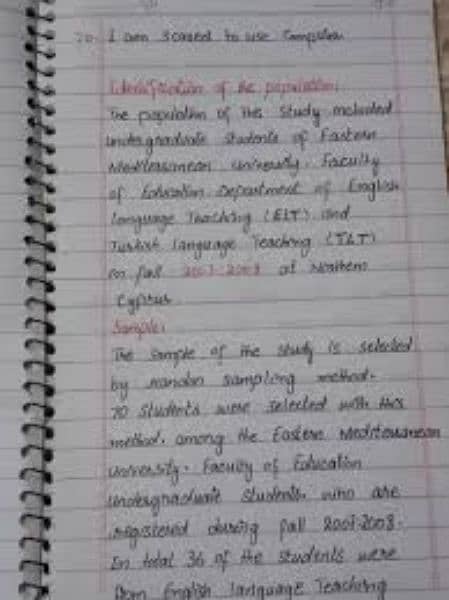 20. I am scared to use Computer
Identification of the population:
The population of this study included
undergraduate students of Eastern
Mediterranean University. Faculty
of Education Department of English
Language Teaching (ELT) and
Turkish Language Teaching (TLT)
in fall 2007-2008 at Northern
Cyprus
Sample:
The sample of the study is selected
by random sampling method.
70 students were selected with this
method. among the Eastern Mediterranean
University. Faculty of Education
Undergraduate Students. who are
registered during fall 2007-2008.
In total 36 of the students were
from English language Teaching